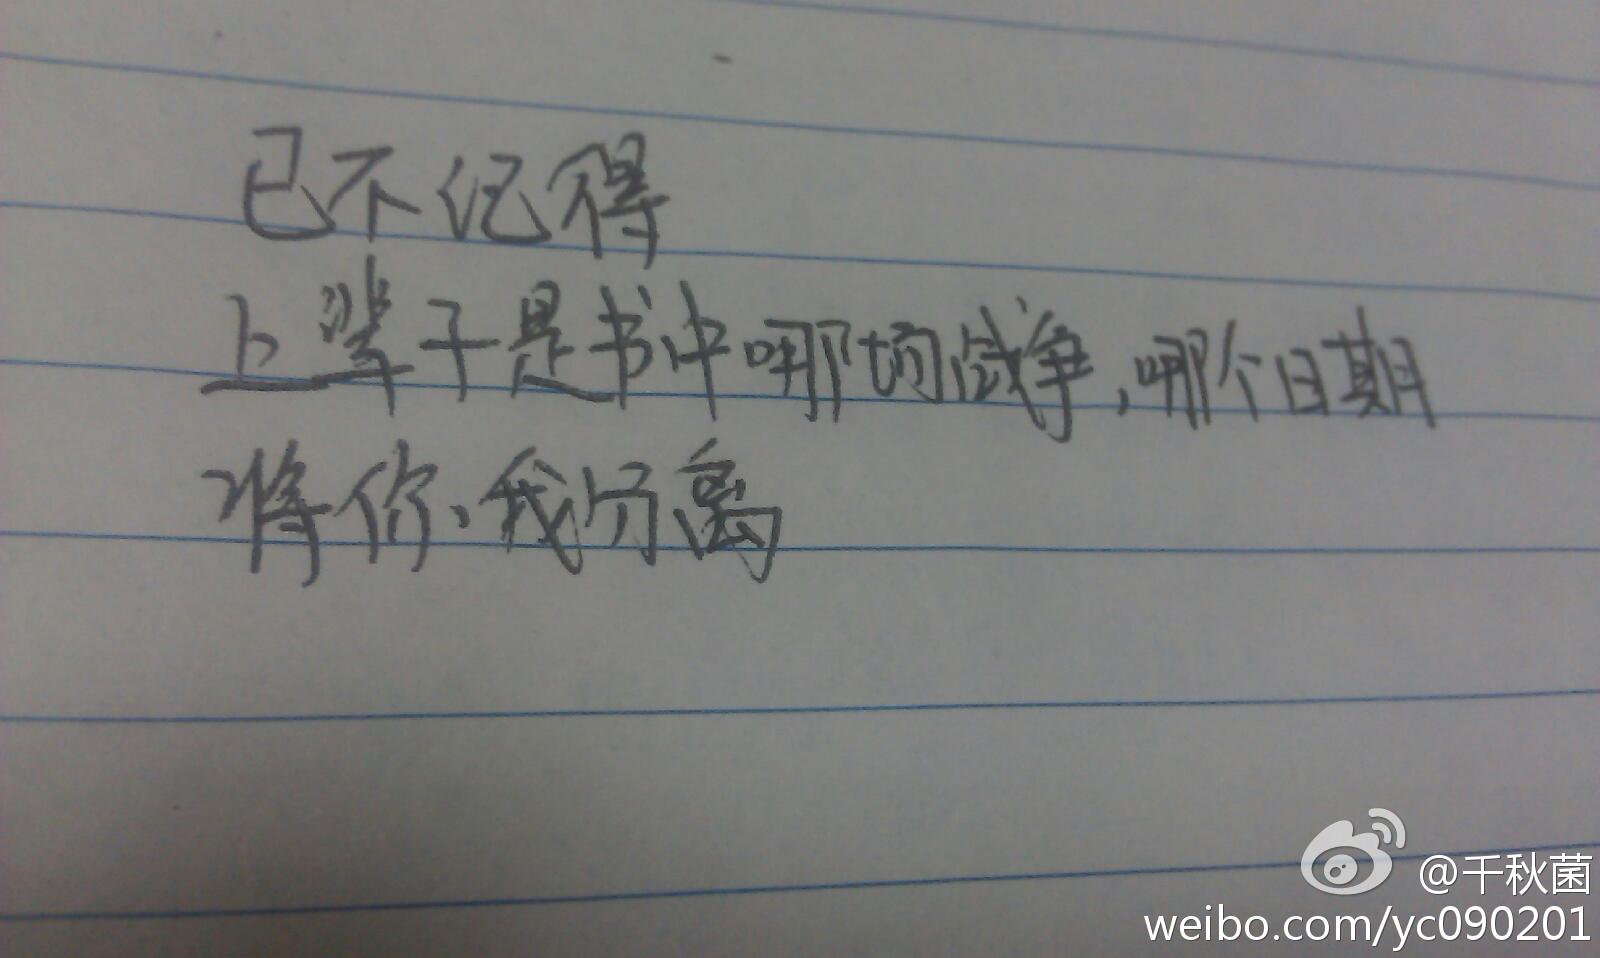 已不记得
上辈子是书中哪场战争,哪个日期
将你、我分离
@千秋菌
weibo.com/yc090201